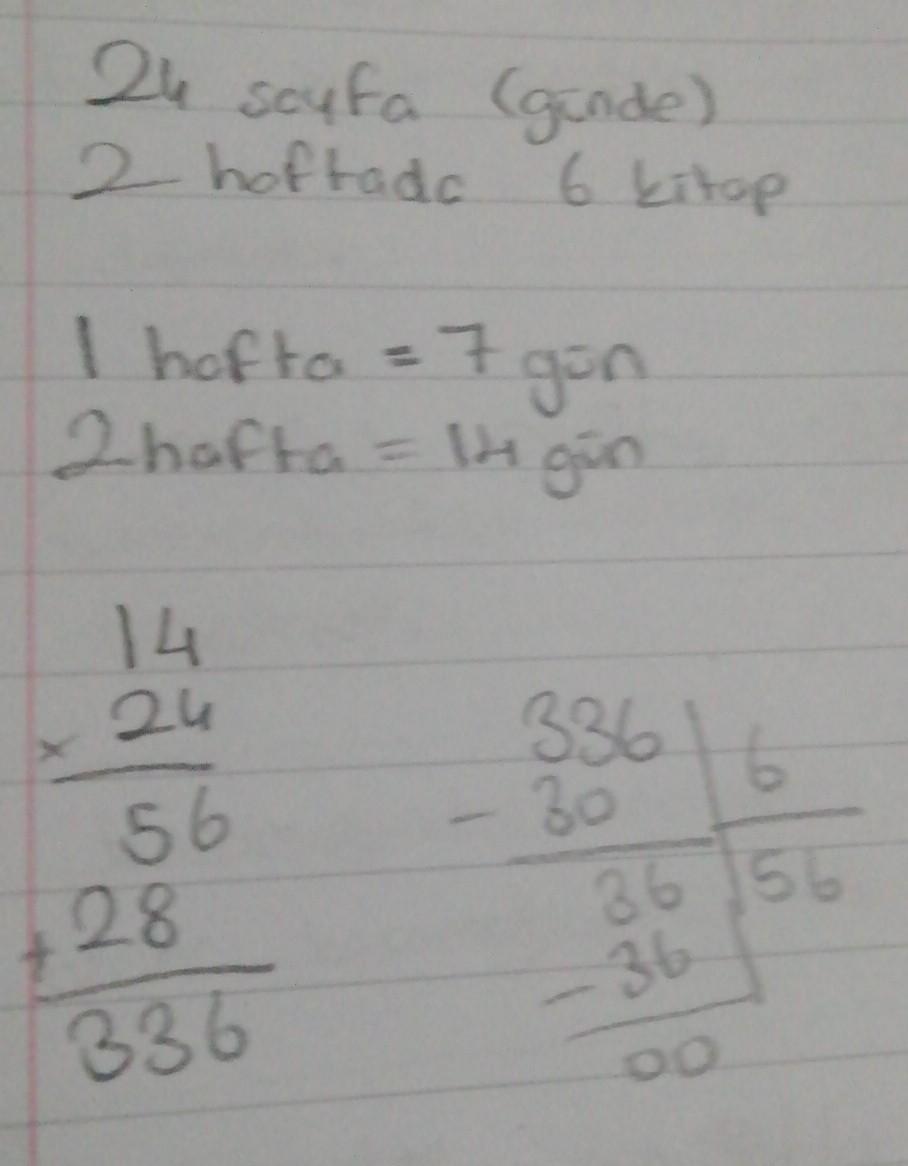 24 sayfa (günde)
2 haftada 6 kitap
1 hafta = 7 gün
2 hafta = 14 gün
14
x 24
56
+ 28
336
336 | 6
- 30
36 | 56
- 36
00